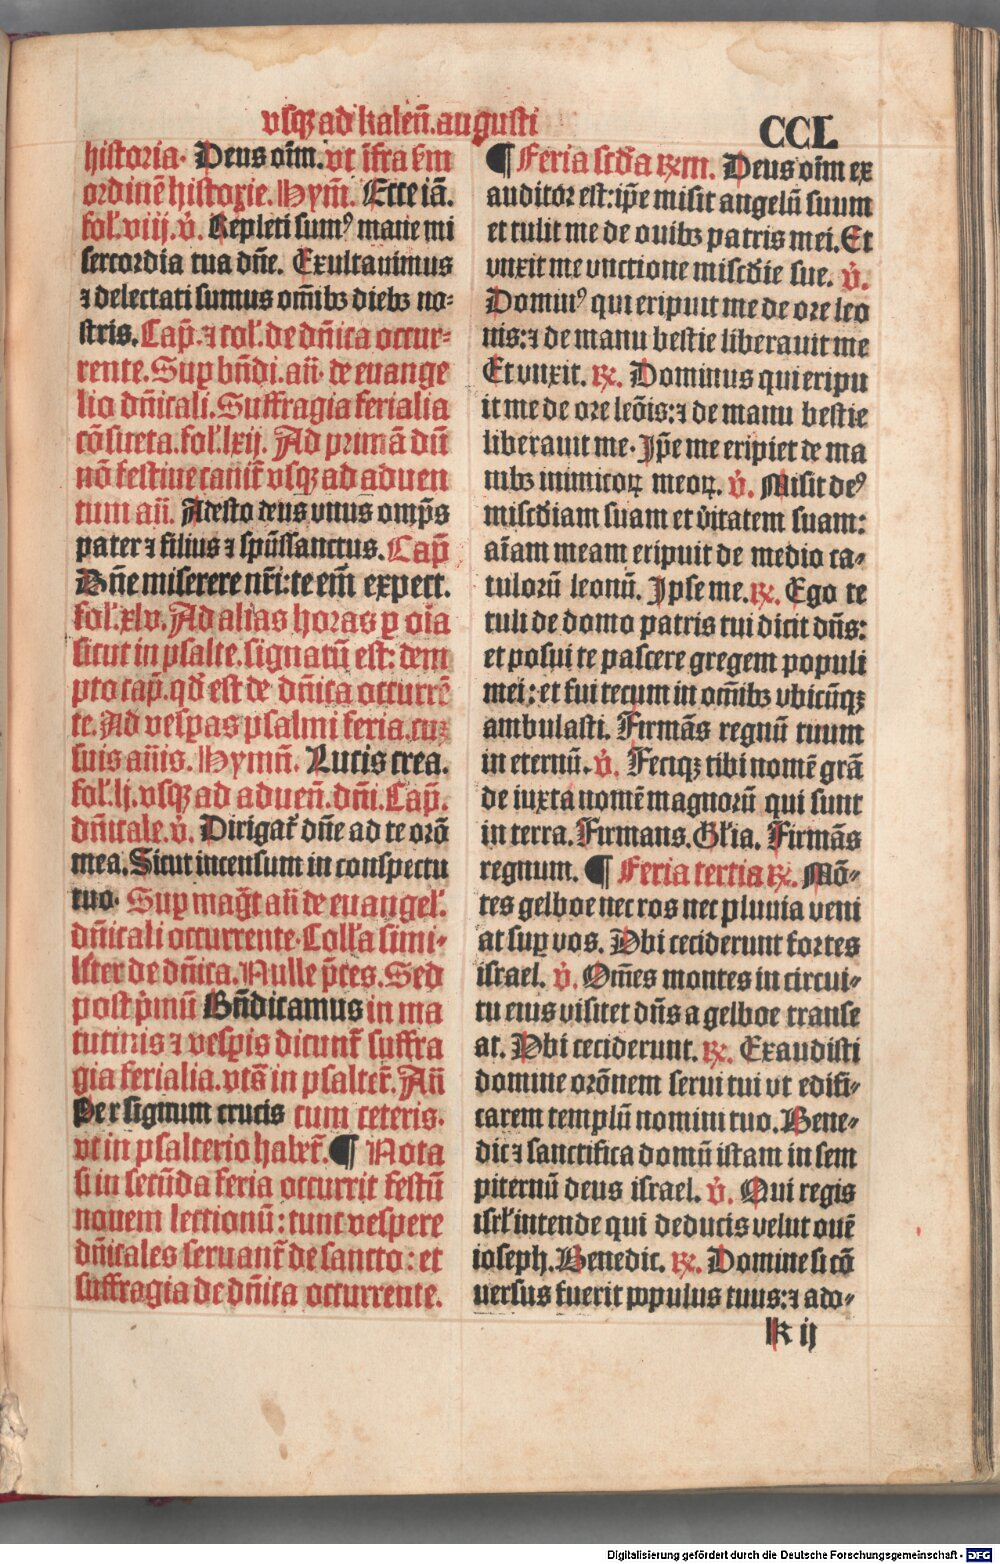 vsqꝫ ad kalen̄. augusti
CCL
historia. Deus oīm. vt īfra ẜm
ordinē historie. Hym̄. Ecce iā.
fol. viij. v̓. Repleti sumꝰ mane mi
sercordia tua dn̄e. Exultauimus
⁊ delectati sumus om̄ibꝫ diebꝫ no⸗
stris. Cap̄. ⁊ col̓. de dn̄ica occur⸗
rente. Suꝑ bn̄di. an̄. de euange
lio dn̄icali. Suffragia ferialia
cōsueta. fol̓. lxij. Ad primā dū
nō festiue canit̄ vsqꝫ ad aduen
tum an̄. Adesto deus vnus omp̄s
pater ⁊ filius ⁊ spūssanctus. Cap̄
Dn̄e miserere nr̄i: te em̄ expect.
fol̓. xlv. Ad alias horas ꝑ oīa
sicut in psalte. signatū est: dem
pto cap̄. qd̓ est de dn̄ica occurrē
te. Ad vesꝑas psalmi feria. cuꝫ
suis an̄is. Hymn̄. Lucis crea.
fol̓. lj. vsqꝫ ad aduen̄. dn̄i. Cap̄.
dn̄icale. v̓. Dirigat̓ dn̄e ad te orō
mea. Sicut incensum in conspectu
tuo. Suꝑ maḡt an̄ de euangel̓.
dn̄icali occurrente. Coll̓a simi⸗
liter de dn̄ica. Nulle p̄ces. Sed
post p̓mū Bn̄dicamus in ma
tutinis ⁊ vesꝑis dicunt̄ suffra
gia ferialia. vts̄ in psalter̄. An̄
Per signum crucis cum ceteris.
vt in psalterio habet̄. ¶ Nota
si in secūda feria occurrit festū
nouem lectionū: tunc vespere
dn̄icales seruant̄ de sancto: et
suffragia de dn̄ica occurrente.
¶ Feria scd̓a ℞m. Deus oīm ex
auditor est: ip̄e misit angelū suum
et tulit me de ouibꝫ patris mei. Et
vnxit me vnctione misc̓die sue. v̓.
Dominꝰ qui eripuit me de ore leo
nis: ⁊ de manu bestie liberauit me
Et vnxit. ℞. Dominus qui eripu
it me de ore leōis: ⁊ de manu bestie
liberauit me. Ip̄e me eripiet de ma
nibꝫ inimicoꝝ meoꝝ. v̓. Misit deꝰ
misc̓diam suam et v̓itatem suam:
aīam meam eripuit de medio ca⸗
tulorū leonū. Ipse me. ℞. Ego te
tuli de domo patris tui dicit dn̄s:
et posui te pascere gregem populi
mei: et fui tecum in om̄ibꝫ vbicūqꝫ
ambulasti. Firmās regnū tuum
in eternū. v̓. Feciqꝫ tibi nomē grā
de iuxta nomē magnorū qui sunt
in terra. Firmans. Gl̓ia. Firmās
regnum. ¶ Feria tertia ℞. Mō⸗
tes gelboe nec ros nec pluuia veni
at suꝑ vos. Vbi ceciderunt fortes
israel. v̓. Om̄es montes in circui⸗
tu eius visitet dn̄s a gelboe transe
at. Vbi ceciderunt. ℞. Exaudisti
domine orōnem serui tui vt edifi⸗
carem templū nomini tuo. Bene⸗
dic ⁊ sanctifica domū istam in sem
piternū deus israel. v̓. Qui regis
isrl̓ intende qui deducis velut ouē
ioseph. Benedic. ℞. Domine si cō
uersus fuerit populus tuus: ⁊ ado⸗
k ij
Digitalisierung gefördert durch die Deutsche Forschungsgemeinschaft - DFG